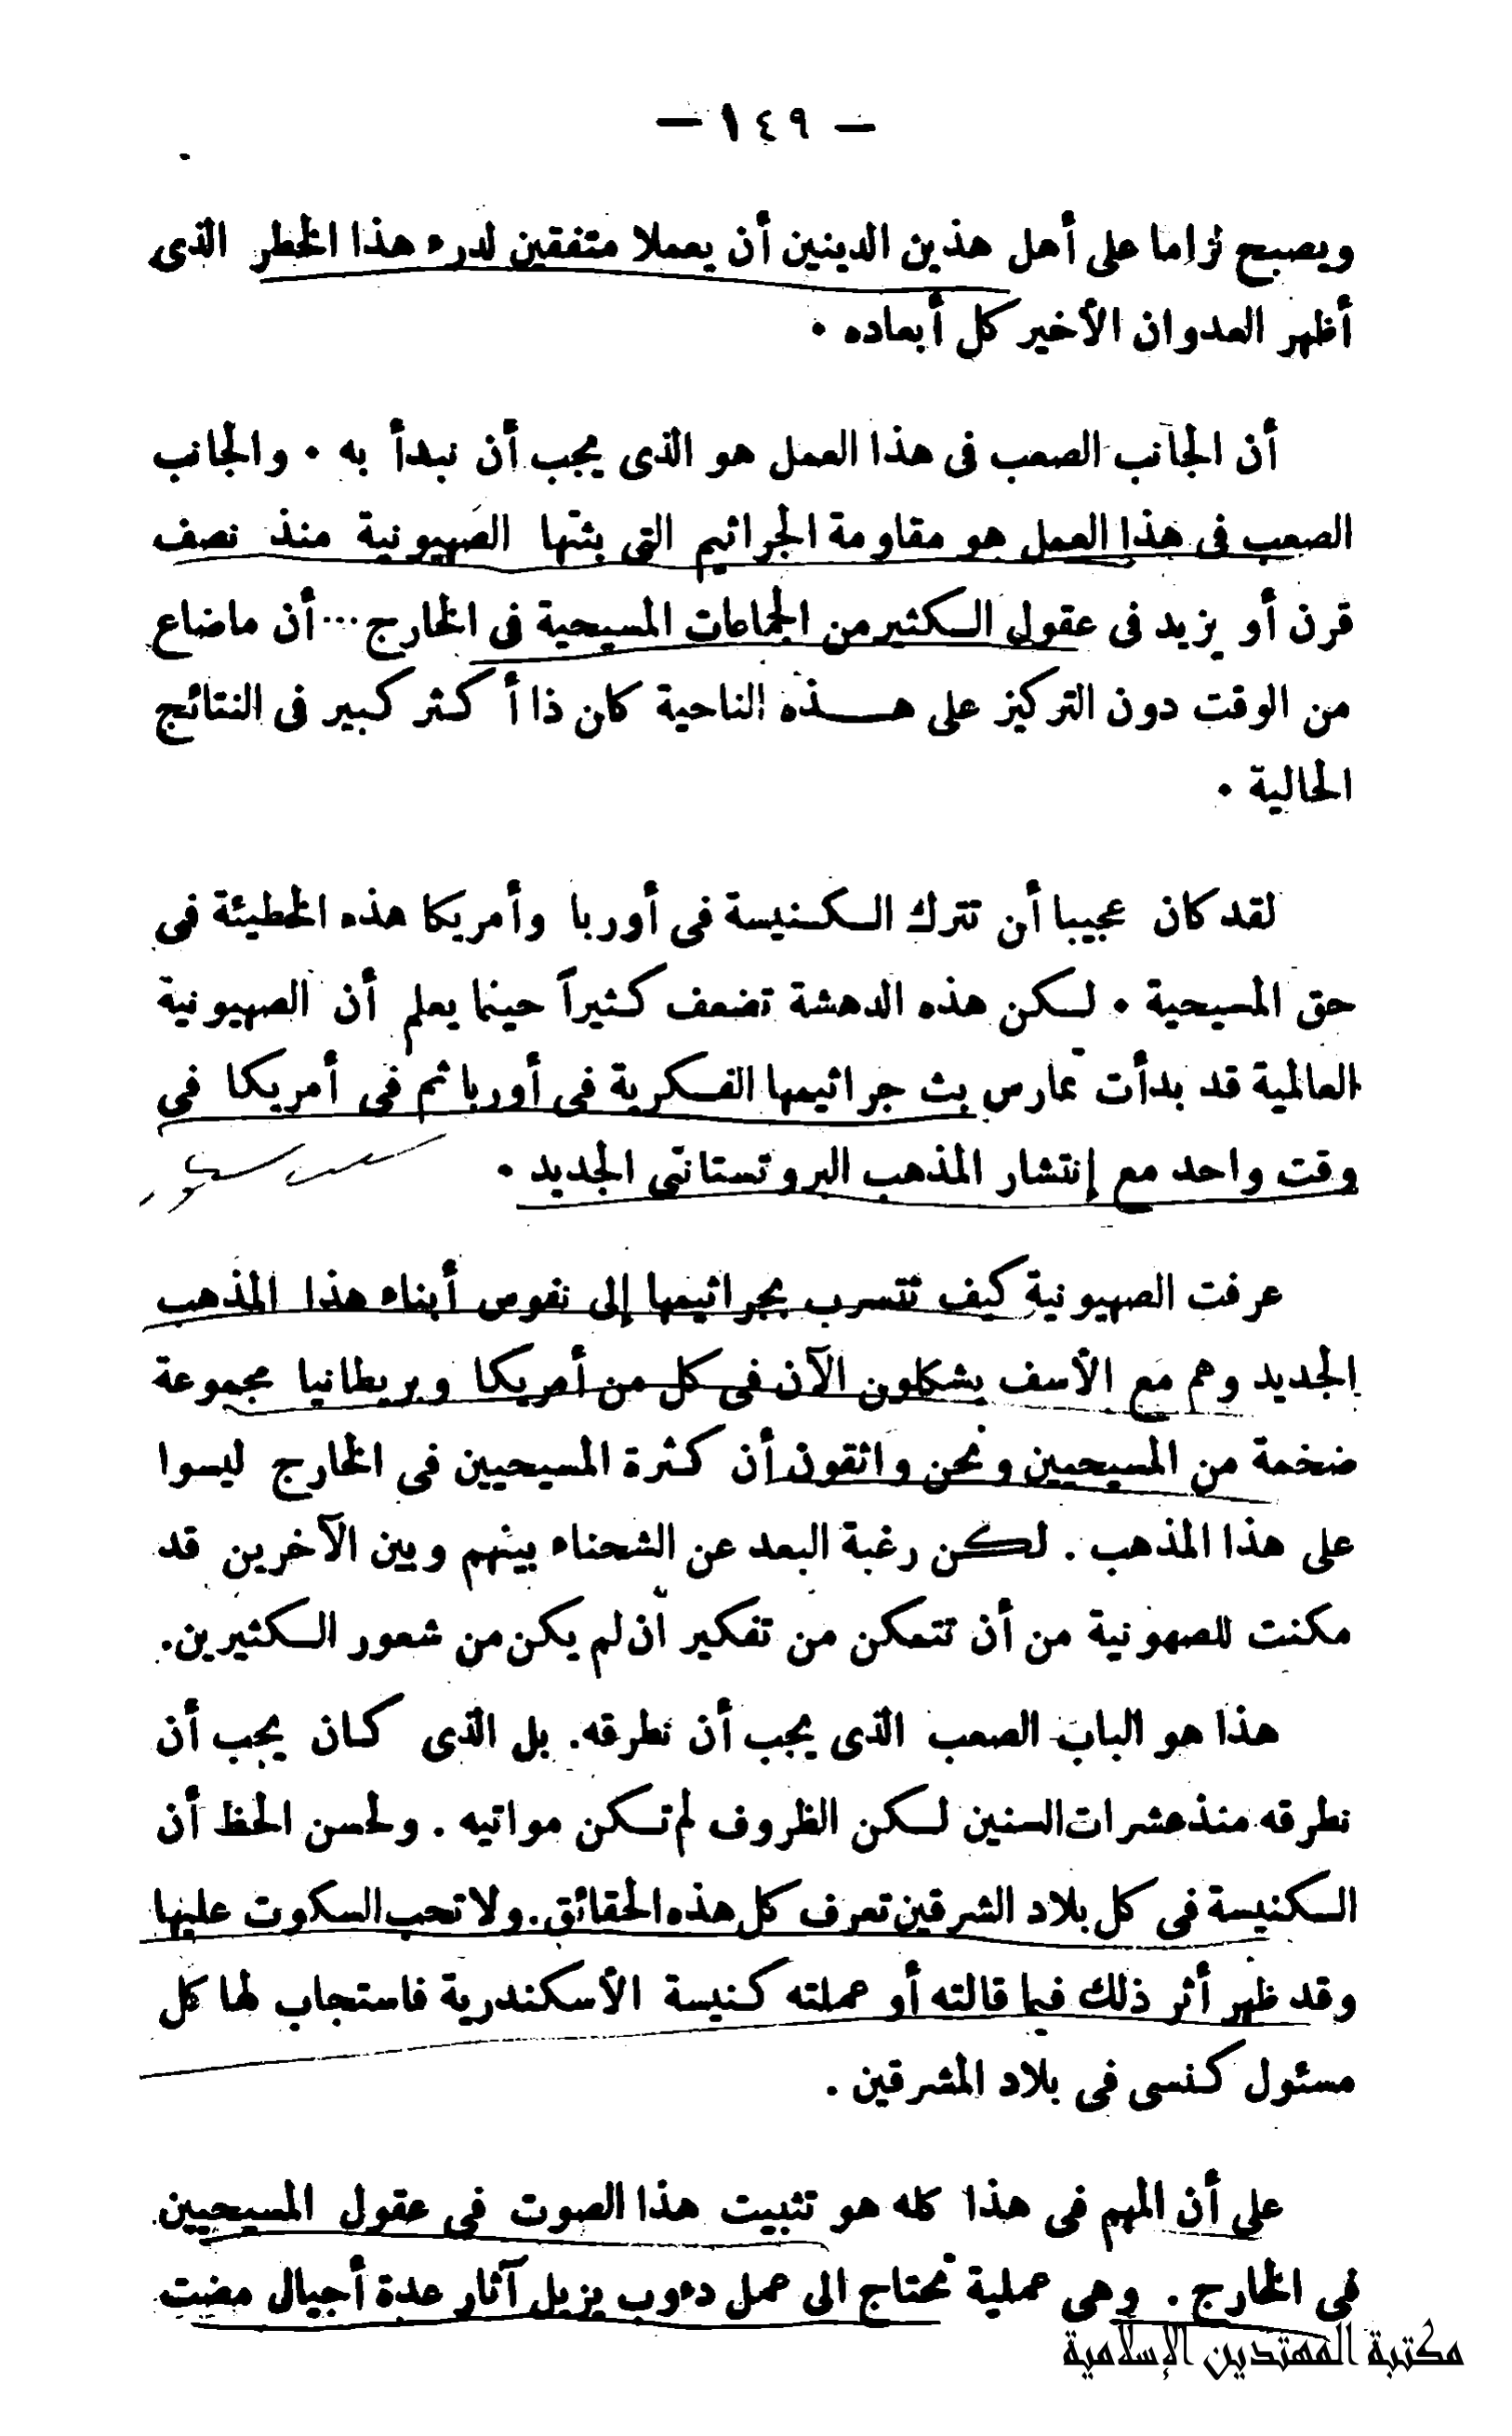 — ١٤٩ —
ويصبح لزاما على أهل هذين الدينين أن يعملا متفقين لدرء هذا الخطر الذى
أظهر العدوان الأخير كل أبعاده ٠
أن الجانب الصعب فى هذا العمل هو الذى يجب أن نبدأ به ٠ والجانب
الصعب فى هذا العمل هو مقاومة الجراثيم التى بثتها الصهيونية منذ نصف
قرن أو يزيد فى عقول الكثير من الجماعات المسيحية فى الخارج ... أن ماضاع
من الوقت دون التركيز على هذه الناحية كان ذا أكثر كبير فى النتائج
الحالية ٠
لقد كان عجيبا أن تترك الكنيسة فى أوربا وأمريكا هذه الخطيئة فى
حق المسيحية ٠ لكن هذه الدهشة تضعف كثيراً حينما يعلم أن الصهيونية
العالمية قد بدأت تمارس بث جراثيمها الفكرية فى أوربا ثم فى أمريكا فى
وقت واحد مع إنتشار المذهب البروتستانتى الجديد ٠
عرفت الصهيونية كيف تتسرب بجراثيمها إلى نفوس أبناء هذا المذهب
الجديد وهم مع الأسف يشكلون الآن فى كل من أمريكا وبريطانيا مجموعة
ضخمة من المسيحيين ونحن واثقون أن كثرة المسيحيين فى الخارج ليسوا
على هذا المذهب . لكن رغبة البعد عن الشحناء بينهم وبين الآخرين قد
مكنت للصهونية من أن تتمكن من تفكير أن لم يكن من شعور الكثيرين.
هذا هو الباب الصعب الذى يجب أن نطرقه. بل الذى كان يجب أن
نطرقه منذ عشرات السنين لكن الظروف لم تكن مواتيه . ولحسن الحظ أن
الكنيسة فى كل بلاد الشرقين تعرف كل هذه الحقائق. ولا تحب السكوت عليها
وقد ظهر أثر ذلك فيما قالته أو عملته كنيسة الأسكندرية فاستجاب لها كل
مسئول كنسى فى بلاد المشرقين .
على أن المهم فى هذا كله هو تثبيت هذا الصوت فى عقول المسيحيين
فى الخارج . وهى عملية تحتاج الى عمل دءوب يزيل آثار عدة أجيال مضت
مكتبة المهتدين الإسلامية